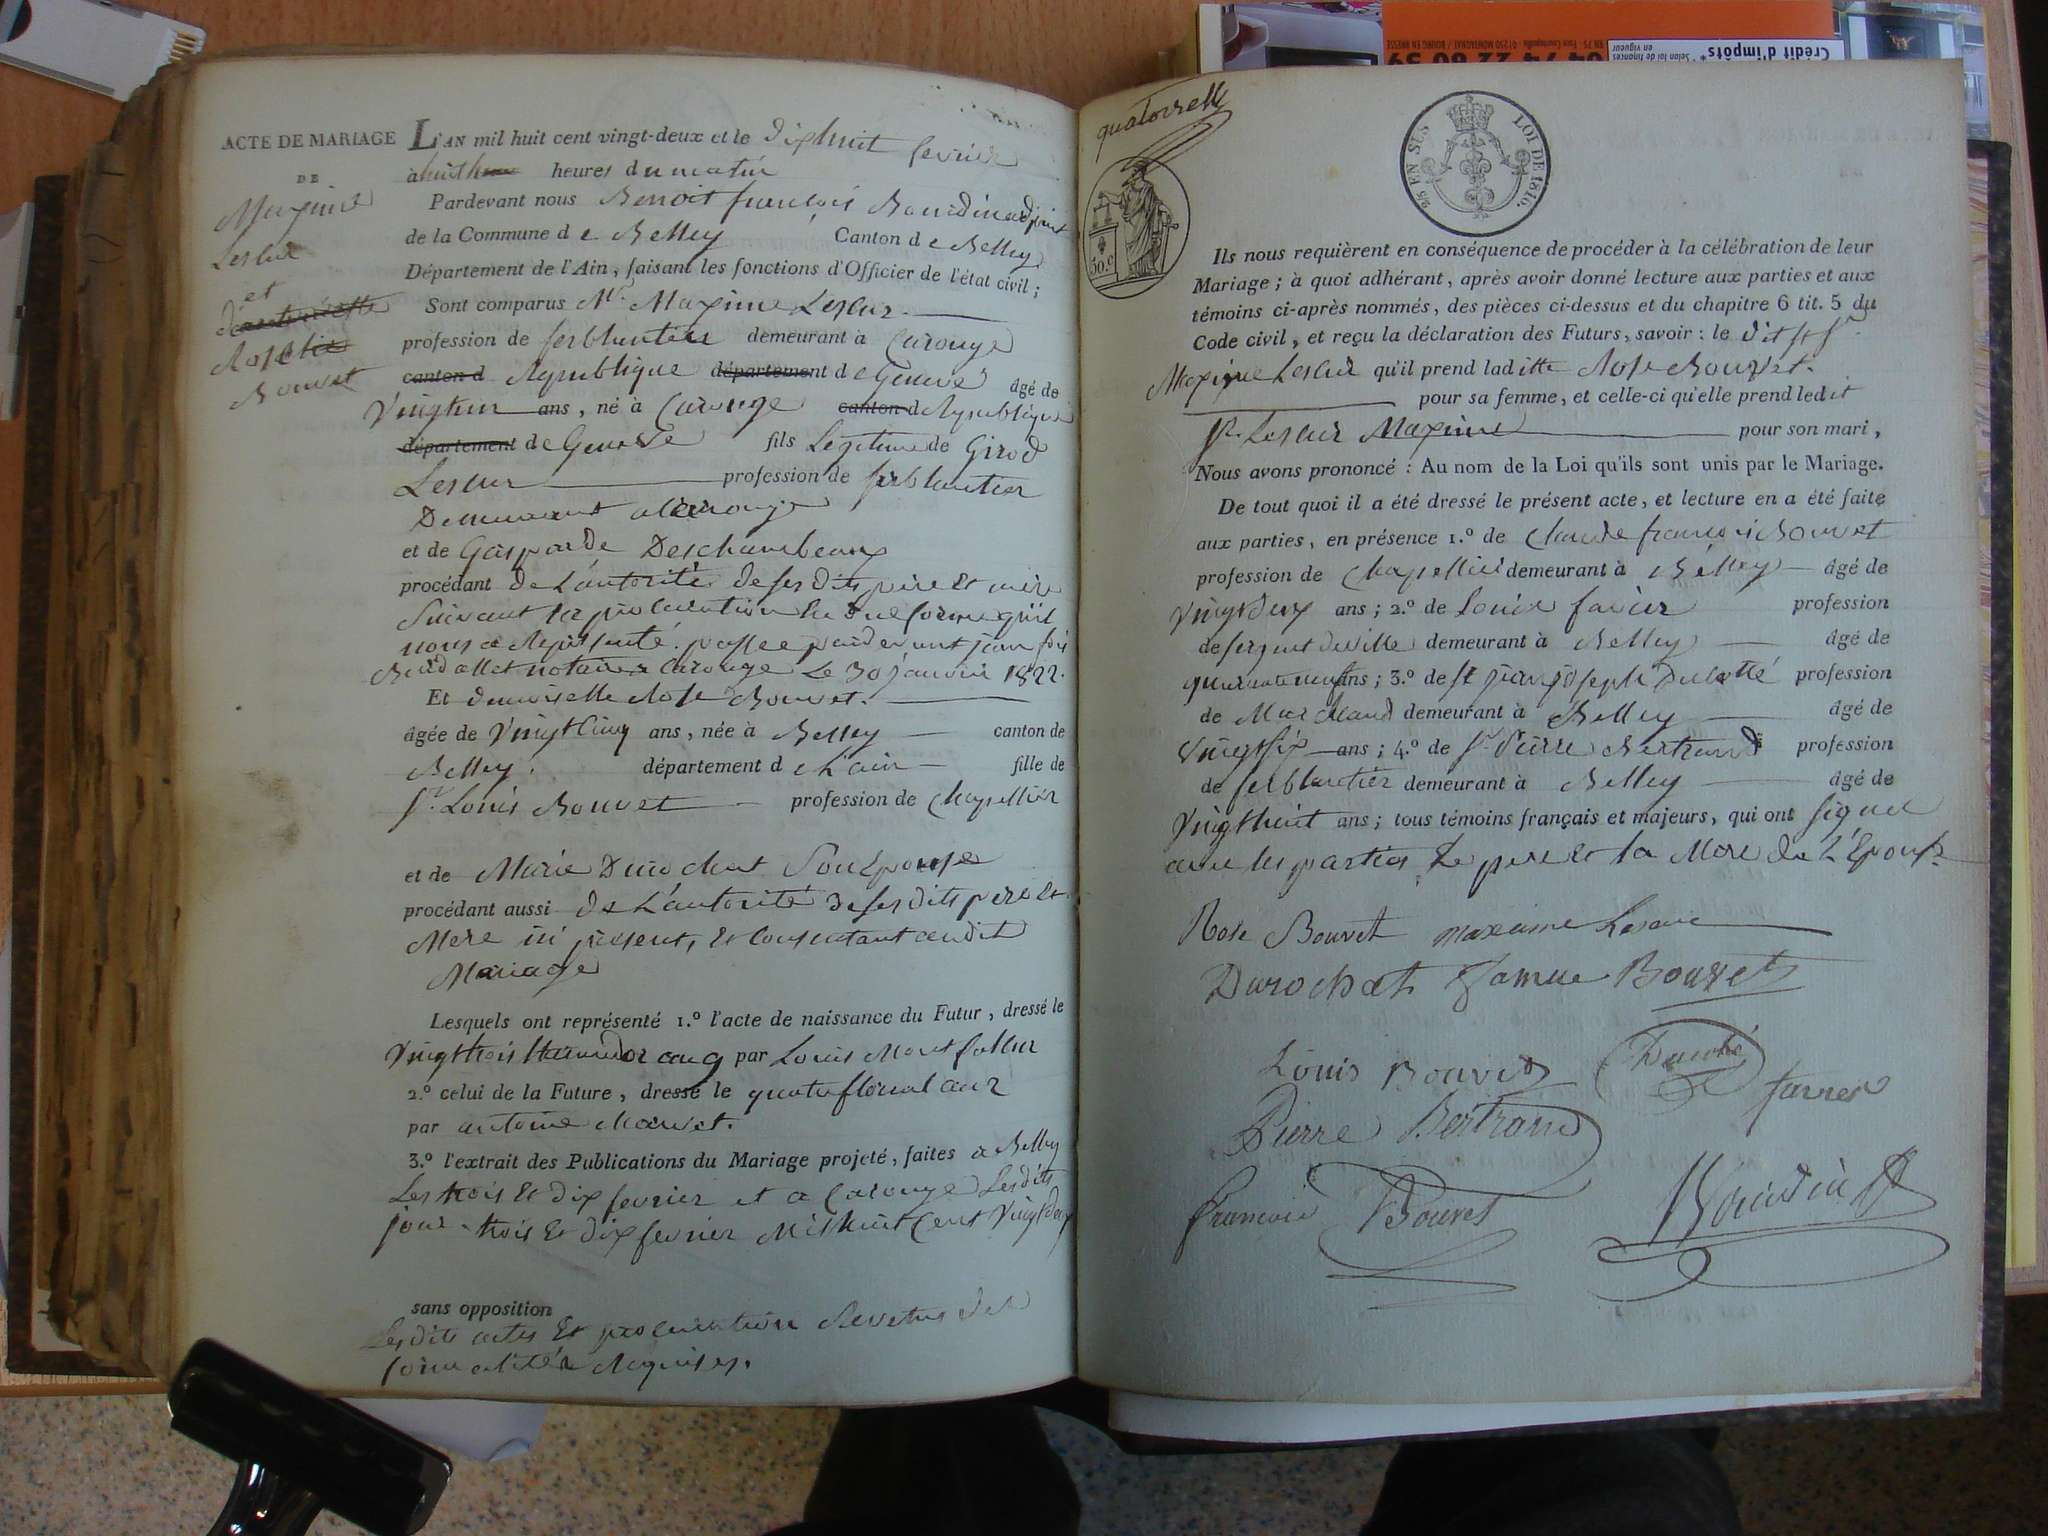 ACTE DE MARIAGE
DE
Maxime
Leslur
et
Rose
Bouvet
L'AN mil huit cent vingt-deux et le dixhuit fevrier
à huit heures du matin
Pardevant nous Benoit françois Bourdin adjoint
de la Commune de Belley Canton de Belley
Département de l'Ain, faisant les fonctions d'Officier de l'état civil;
Sont comparus Mr. Maxime Leslur
profession de ferblantier demeurant à Carouge
canton d Republique département de Geneve âgé de
Vingt un ans, né à Carouge canton d Republique
département de Geneve fils Legitime de Girod
Leslur profession de ferblantier
Demeurant a Carouge
et de Gasparde Deschambeaux
procédant de L'autorité de ses dits père et mère
Suivant la procuration en due forme qu'il
nous a Representé passee pardevant jean
notaire a Carouge Le 30 janvier 1822.
Et demoiselle Rose Bouvet.
âgée de Vingt Cinq ans, née à Belley canton de
Belley. département de L'ain fille de
Sr. Louis Bouvet profession de Chapellier
et de Marie Durochat Son Epouse
procédant aussi de L'autorité de ses dits pere et
Mere ici présents, et Consentant au dit
Mariage
Lesquels ont représenté 1.º l'acte de naissance du Futur, dressé le
Vingt trois an 9 par Louis Montfalcon
2.º celui de la Future, dressé le quatre floreal an
par antoine
3.º l'extrait des Publications du Mariage projeté, faites à Belley
Les trois et dix fevrier et a Carouge Les dits
jour trois et dix fevrier Mil huit Cent Vingt deux
sans opposition
Les dits actes et procuration Revetus des
formalités Requises.
quatorze
50.c
25 EN SUS LOI DE 1816.
Ils nous requièrent en conséquence de procéder à la célébration de leur
Mariage; à quoi adhérant, après avoir donné lecture aux parties et aux
témoins ci-après nommés, des pièces ci-dessus et du chapitre 6 tit. 5 du
Code civil, et reçu la déclaration des Futurs, savoir: le dit Sr
Maxime Leslur qu'il prend laditte Rose Bouvet.
pour sa femme, et celle-ci qu'elle prend ledit
Sr. Leslur Maxime pour son mari,
Nous avons prononcé: Au nom de la Loi qu'ils sont unis par le Mariage.
De tout quoi il a été dressé le présent acte, et lecture en a été faite
aux parties, en présence 1.º de Claude françois Bouvet
profession de Chapellier demeurant à Belley âgé de
Vingt deux ans; 2.º de Louis favier profession
de sergent de ville demeurant à Belley âgé de
quarante neuf ans; 3.º de Sr jean joseph profession
de Marchand demeurant à Belley âgé de
Vingt six ans; 4.º de Sr. Pierre Bertrand profession
de ferblantier demeurant à Belley âgé de
Vingt huit ans; tous témoins français et majeurs, qui ont signé
avec les parties, Le pere et la Mere de L'Epouse
Rose Bouvet maxime
Durochat famue Bouvet
Louis Bouvet
Pierre Bertrand
francois Bouvet Bourdin
04 74 22 60 59
RN 75 - Face Courtepaille - 01250 MONTAGNAT / BOURG EN BRESSE
Crédit d'impôts*
* Selon loi de finances
en vigueur